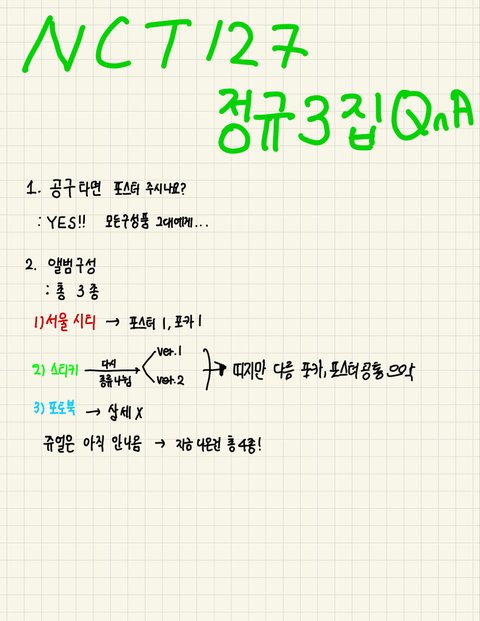 NCT 127
정규 3집 QnA
1. 공구 타면 포스터 주시나요?
: YES!! 모든구성품 그대에게...
2. 앨범구성
: 총 3종
1) 서울 시티 → 포스터 1, 포카 1
2) 스티키 다시 종류나뉨 ver.1 ver.2 → 띠지만 다름 포카, 포스터 공통
3) 포토북 → 상세 X
쥬얼은 아직 안나옴 → 지금 나온건 총 4종!